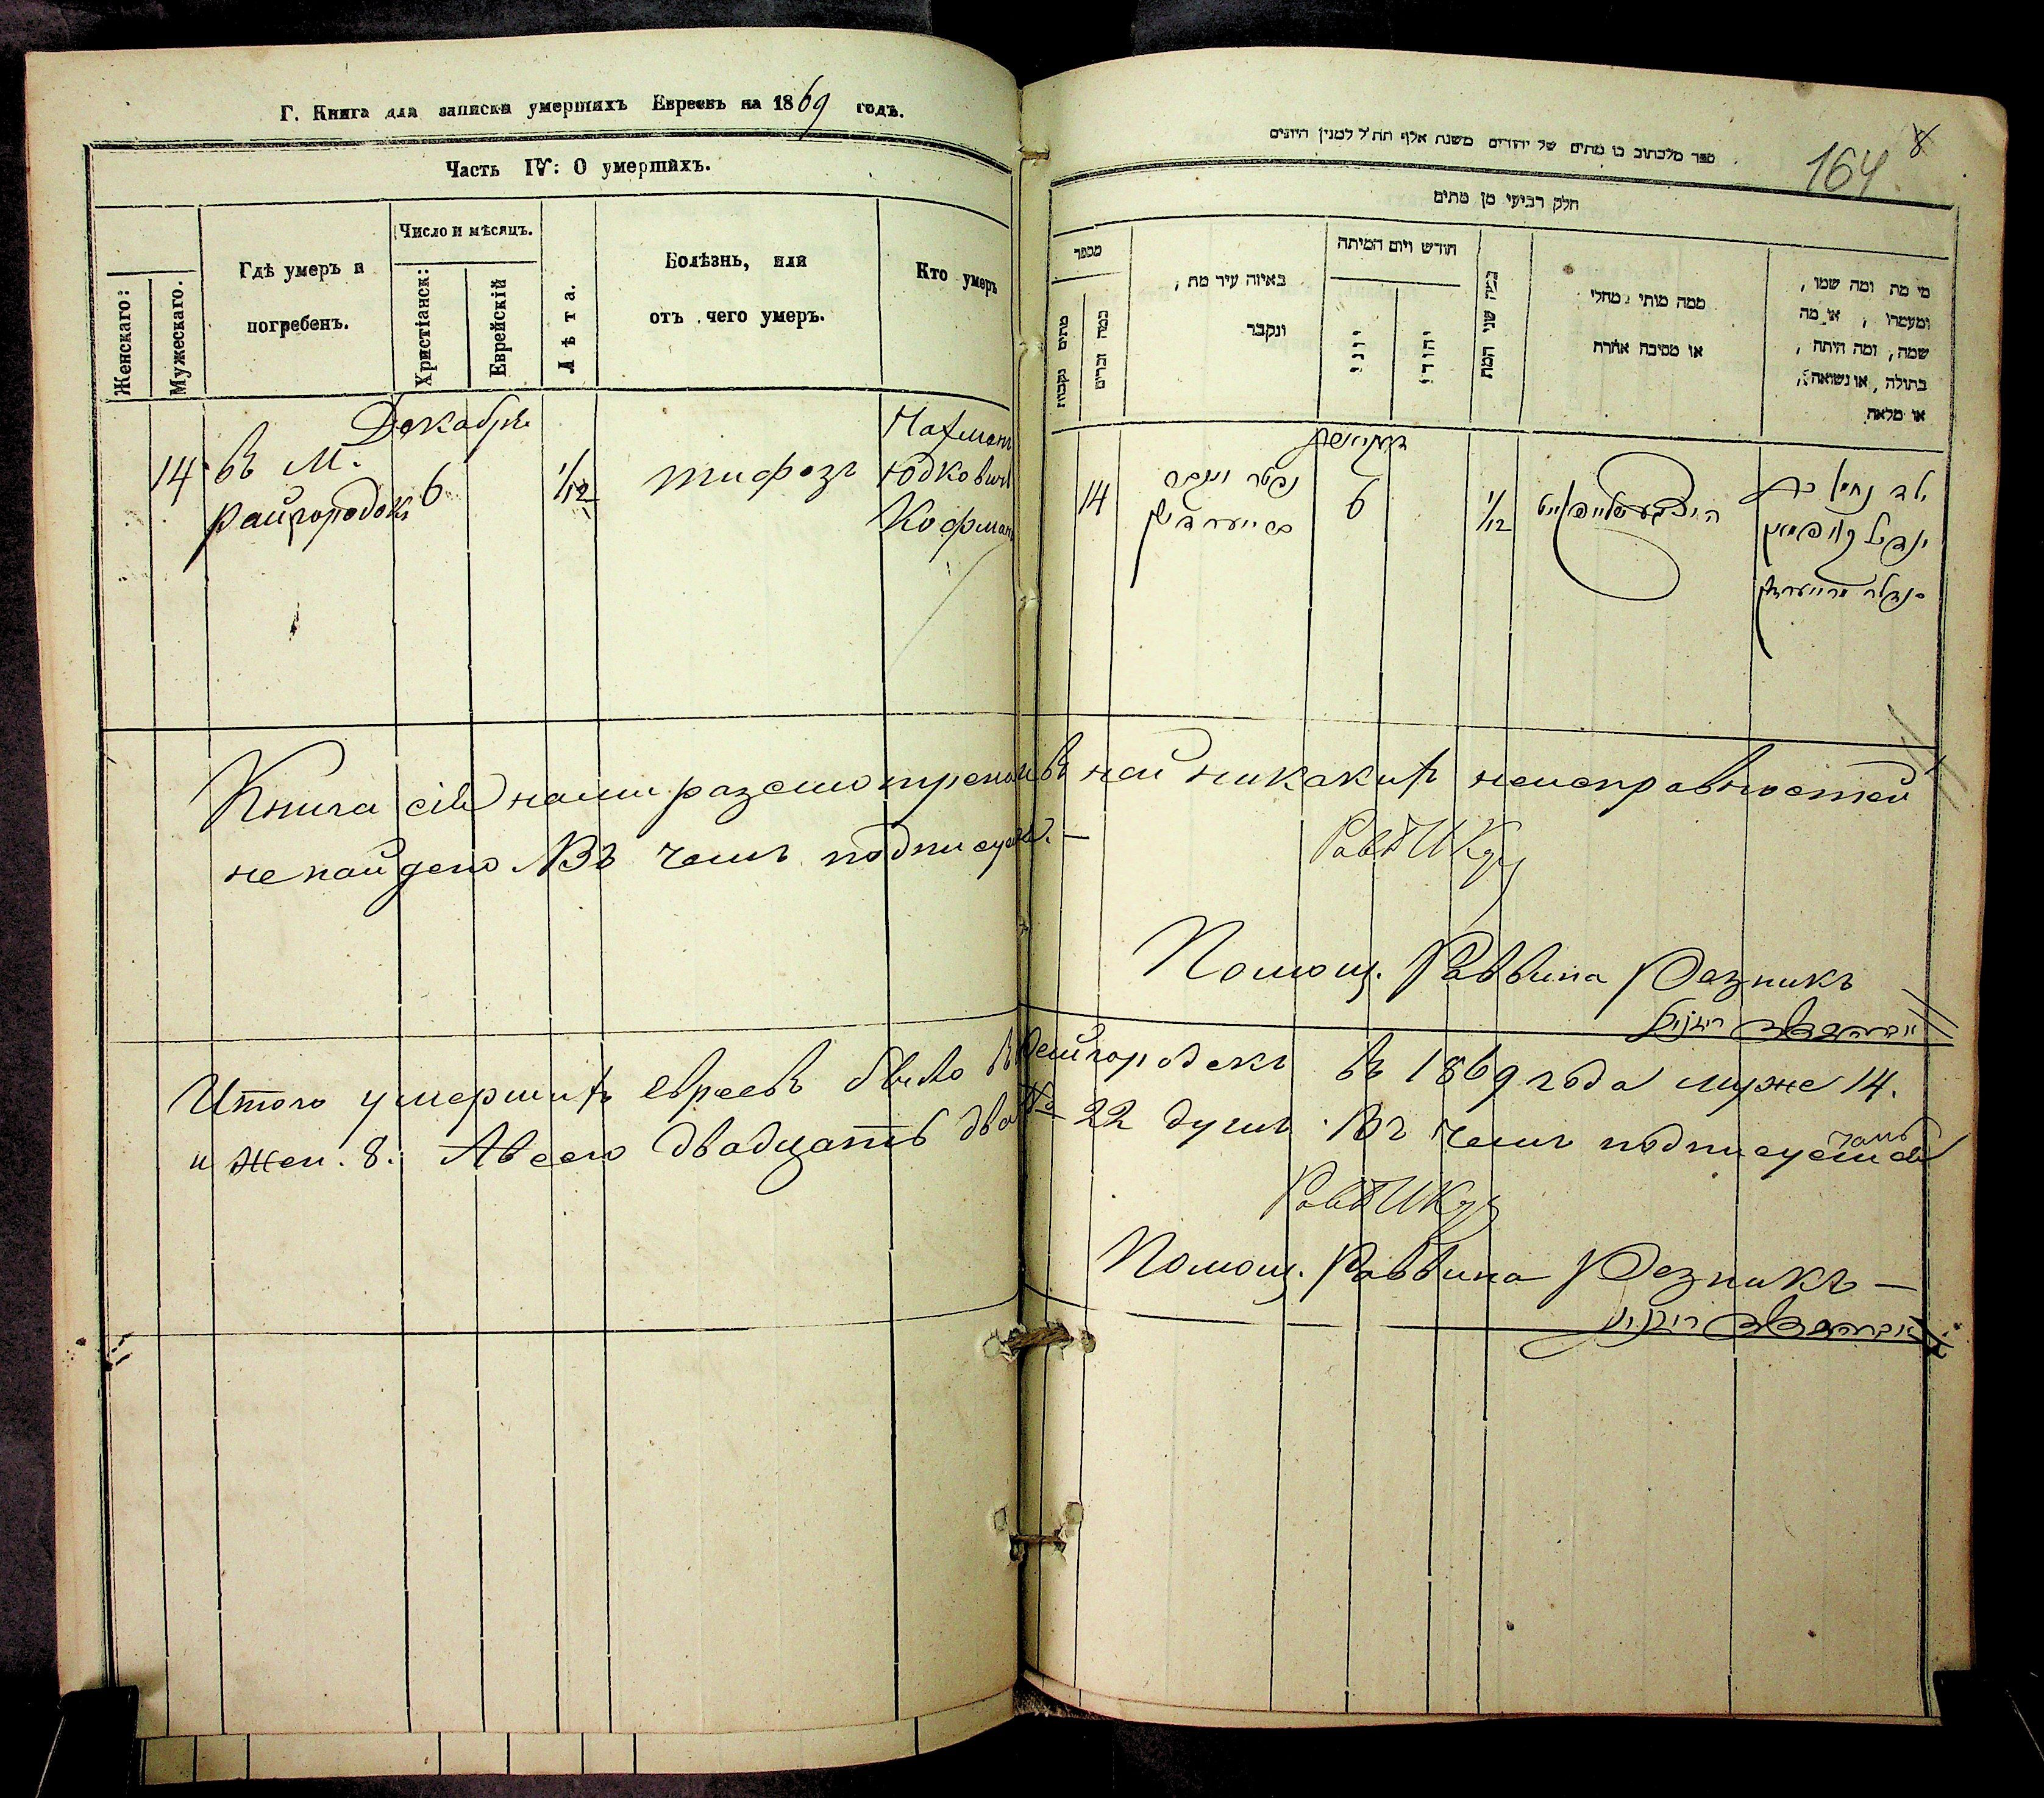 Г. Книга для записки умершихъ Евреевъ на 1869 годъ.
Часть IV: О умершихъ.
Женскаго:
Мужескаго.
Гдѣ умеръ и
погребенъ.
Число и мѣсяцъ.
Христіанск:
Еврейскій
Лѣта.
Болѣзнь, или
отъ чего умеръ.
Кто умеръ
Декабрь
14 въ М. 6 1/12 тифозъ Нахманъ
Райгородокъ Юдковичъ
Кофманъ
Книга сія нами разсмотрена и въ ней никакихъ неисправностей
не найдено Въ чемъ подписуемъ. —
Помощ. Раввина Резникъ
Итого умершихъ евреевъ было въ Райгородокъ въ 1869 года муже 14.
и жен. 8. А всего двадцать два 22 душъ. Въ чемъ подписуемся
Помощ. Раввина Резникъ —
164
8
ספר מלכתוב בו מתים של יהודים משנת אלף תת״ל למנין היונים
חלק רביעי מן מתים
מספר
מתים נקבות
כמה זכרים
באיזה עיר מת,
ונקבר
חודש ויום המיתה
יוני
יהודי
כמה שני המת
ממה מותי מחלי
או מסיבה אחרת
מי מת ומה שמו,
ומעמדו, או מה
שמה, ומה היתה,
בתולה, או נשואה,
או מלאה
14
נפטר ונקבר
6
1/12
ילד נחמן בן